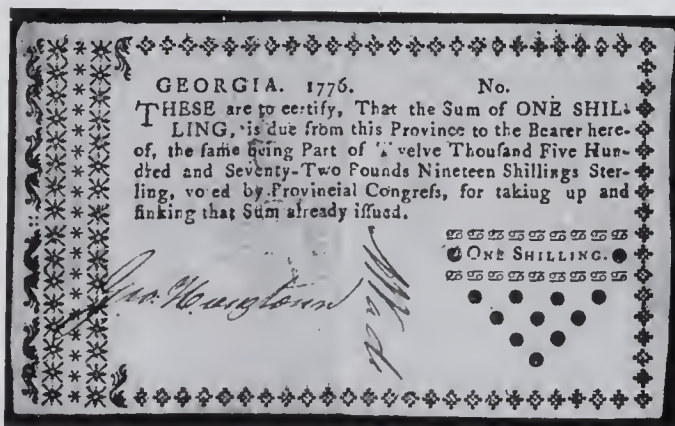 GEORGIA. 1776. No.
THESE are to certify, That the Sum of ONE SHIL-
LING, is due from this Province to the Bearer here-
of, the ſame being Part of Twelve Thouſand Five Hun-
dred and Seventy-Two Pounds Nineteen Shillings Ster-
ling, voted by Provincial Congreſs, for taking up and
ſinking that Sum already iſſued.
ONE SHILLING.
Jno. Houstoun
Wade